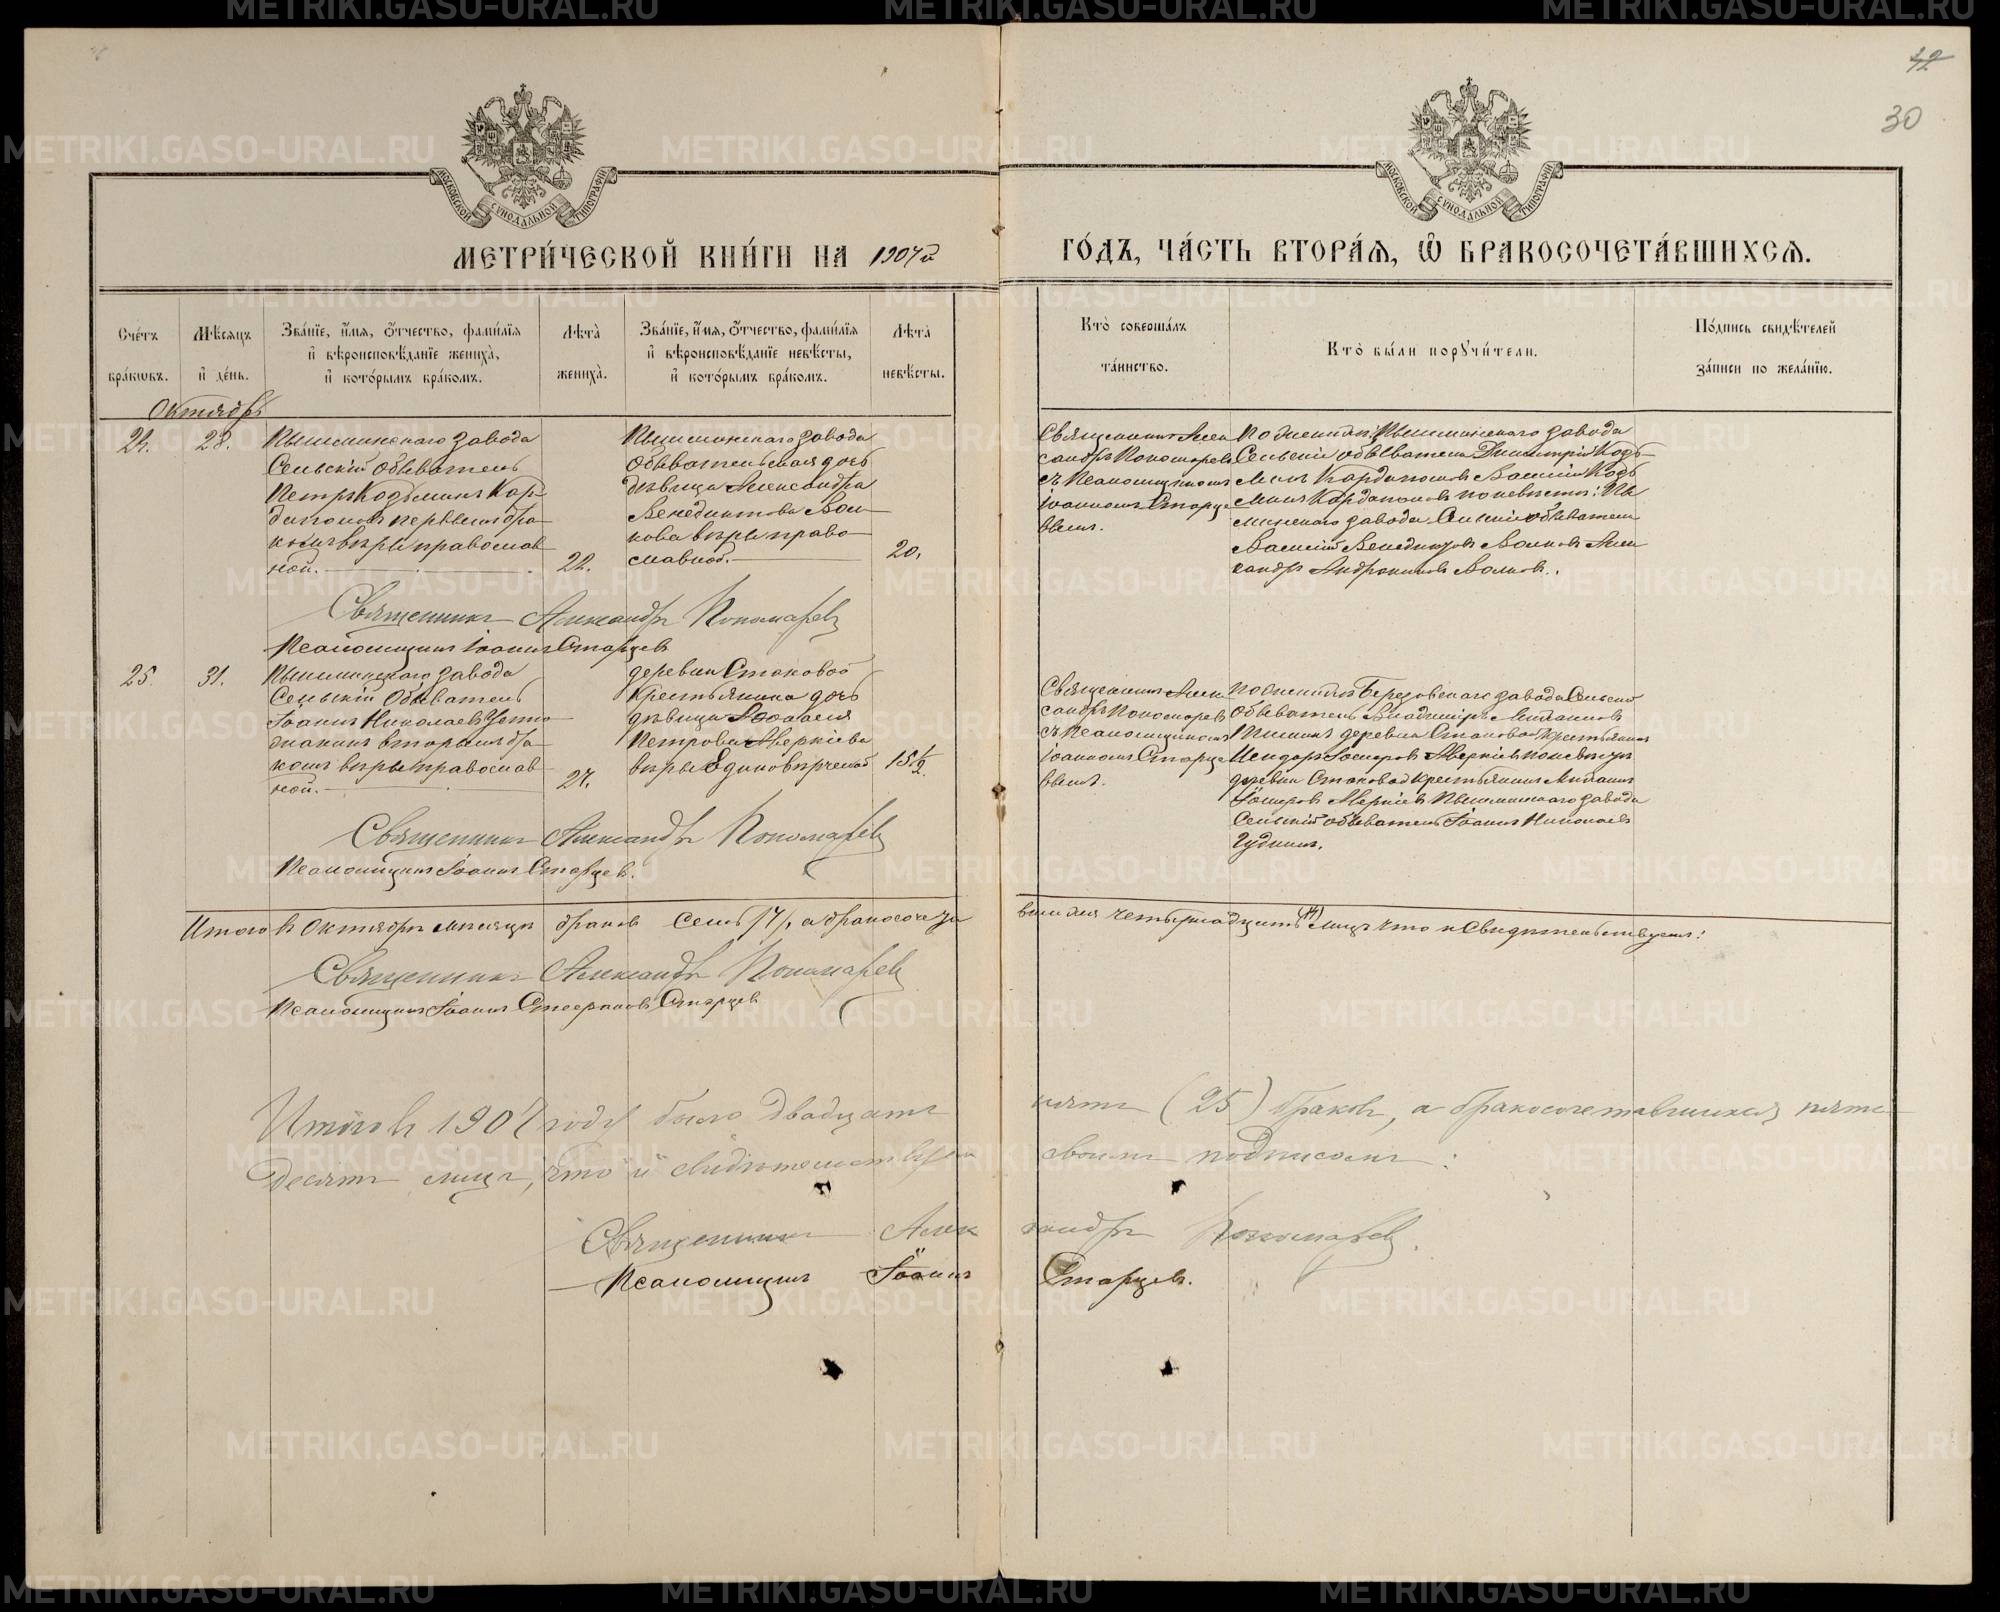 42
30
МОСКОВСКОЙ СѴНОДАЛЬНОЙ ТИПОГРАФІИ
МОСКОВСКОЙ СѴНОДАЛЬНОЙ ТИПОГРАФІИ
МЕТРИ́ЧЕСКОЙ КНИ́ГИ НА 1907й
ГО́ДЪ, ЧА́СТЬ ВТОРА́Я, Ѡ БРАКОСОЧЕТА́ВШИХСЯ.
Сче́тъ бра́кωвъ.
Мѣ́сяцъ и҆ де́нь.
Зва́нїе, и҆́мя, ѻ҆́тчество, фами́лїя и҆ вѣроисповѣ́данїе жениха̀, и҆ кото́рымъ бра́комъ.
Лѣ́та жениха̀.
Зва́нїе, и҆́мя, ѻ҆́тчество, фами́лїя и҆ вѣроисповѣ́данїе невѣ́сты, и҆ кото́рымъ бра́комъ.
Лѣ́та невѣ́сты.
Кто̀ соверша́лъ та́инство.
Кто̀ бы́ли порꙋчи́тели.
По́дпись свидѣ́телей за́писи по жела́нїю.
Октябрь
24. 28.
Пышминскаго завода
Сельскій Обыватель
Петръ Козьминъ Кар-
дапоновъ первымъ бра-
комъ вѣры православ-
ной.
22.
Пышминскаго завода
Обывательская дочь
дѣвица Александра
Венедиктова Вол-
кова вѣры право-
славной.
20.
Священникъ Алек
сандръ Пономаревъ
съ Псаломщикомъ
Іоанномъ Старце
вымъ.
По женихѣ: Пышминскаго завода
Сельскіе обыватели Димитрій Козь-
минъ Кардапоновъ Василій Козь
минъ Кардапоновъ по невѣстѣ: Пы
шминскаго завода Сельскіе обыватели
Василій Венедиктовъ Волковъ Алек
сандръ Андрониковъ Волковъ.
Священникъ Александръ Пономаревъ
Псаломщикъ Іоаннъ Старцевъ
25. 31.
Пышминскаго завода
Сельскій Обыватель
Іоаннъ Николаевъ
вторымъ бра-
комъ вѣры православ-
ной.
27.
деревни Становой
крестьянина дочь
дѣвица
Петрова Аверкіева
вѣры Единовѣрческой
15 1/2
Священникъ Алек
сандръ Пономаревъ
съ Псаломщикомъ
Іоанномъ Старце
вымъ.
По женихѣ Березовскаго завода Сельскій
обыватель Владиміръ
деревни Становой крестьянинъ
Аверкіевъ по невѣстѣ
деревни Становой крестьянинъ
Аверкіевъ Пышминскаго завода
Сельскій обыватель Іоаннъ Николаевъ
Чудинъ.
Священникъ Александръ Пономаревъ
Псаломщикъ Іоаннъ Старцевъ.
Итого въ Октябрѣ мѣсяцѣ браковъ семь /7/, а бракосочета
вшихся четырнадцать (14) лицъ что и свидѣтельствуемъ:
Священникъ Александръ Пономаревъ
Псаломщикъ Іоаннъ Старцевъ
Итого въ 1907 году было двадцать пять (25) браковъ, а бракосочетавшихся пять-
десятъ лицъ, что и свидѣтельствуемъ своимъ подписомъ:
Священникъ Александръ Пономаревъ.
Псаломщикъ Іоаннъ Старцевъ.